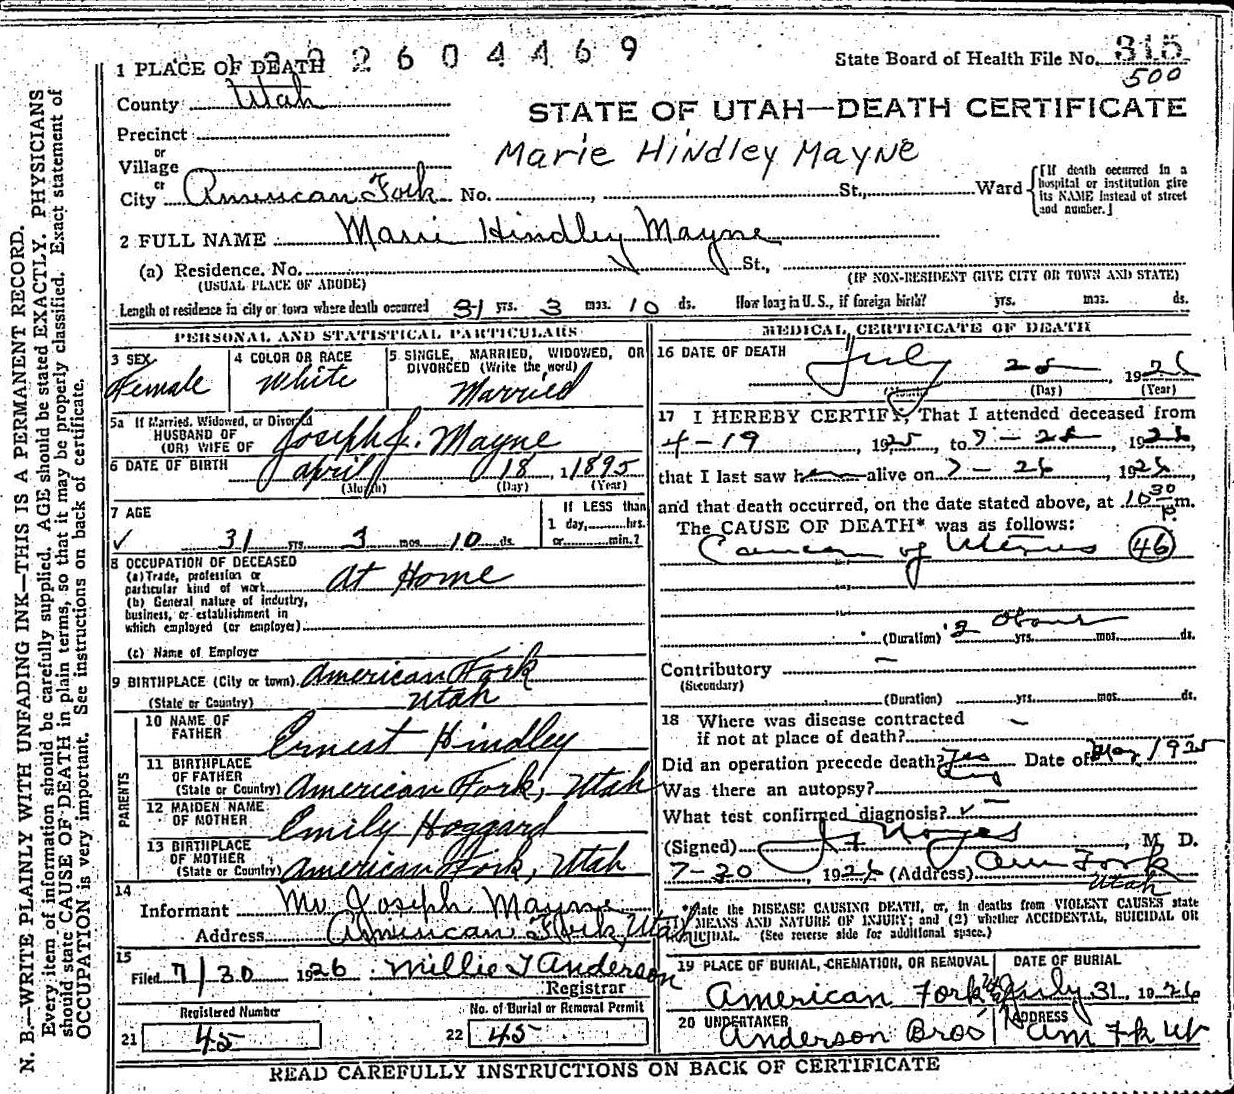 2 6 0 4 4 6 9
State Board of Health File No. 315
500
1 PLACE OF DEATH
County Utah
STATE OF UTAH—DEATH CERTIFICATE
Precinct
or
Village
Marie Hindley Mayne
or
City American Fork No. , St., Ward
[If death occurred in a hospital or institution give its NAME instead of street and number.]
2 FULL NAME Marie Hindley Mayne
(a) Residence. No. St.,
(USUAL PLACE OF ABODE) (IF NON-RESIDENT GIVE CITY OR TOWN AND STATE)
Length of residence in city or town where death occurred 31 yrs. 3 mos. 10 ds. How long in U. S., if foreign birth? yrs. mos. ds.
PERSONAL AND STATISTICAL PARTICULARS
3 SEX Female
4 COLOR OR RACE White
5 SINGLE, MARRIED, WIDOWED, OR DIVORCED (Write the word) Married
5a If Married, Widowed, or Divorced
HUSBAND OF
(OR) WIFE OF Joseph J. Mayne
6 DATE OF BIRTH April 18, 1895
(Month) (Day) (Year)
7 AGE
31 yrs. 3 mos. 10 ds.
If LESS than
1 day, hrs.
or min.?
8 OCCUPATION OF DECEASED
(a) Trade, profession or
particular kind of work At Home
(b) General nature of industry,
business, or establishment in
which employed (or employer)
(c) Name of Employer
9 BIRTHPLACE (City or town) American Fork
(State or Country) Utah
PARENTS
10 NAME OF
FATHER Ernest Hindley
11 BIRTHPLACE
OF FATHER
(State or Country) American Fork, Utah
12 MAIDEN NAME
OF MOTHER Emily Hoggard
13 BIRTHPLACE
OF MOTHER
(State or Country) American Fork, Utah
14
Informant Mr Joseph Mayne
Address American Fork, Utah
15
Filed 7/30 1926 Millie T Anderson
Registrar
Registered Number
21 45
No. of Burial or Removal Permit
22 45
MEDICAL CERTIFICATE OF DEATH
16 DATE OF DEATH
July 28, 1926
(Month) (Day) (Year)
17 I HEREBY CERTIFY, That I attended deceased from
4-19, 1925, to 7-28, 1926,
that I last saw her alive on 7-26, 1926,
and that death occurred, on the date stated above, at 10 30 p. m.
The CAUSE OF DEATH* was as follows:
Cancer of Uterus (46)
(Duration) 2 yrs. mos. ds.
Contributory —
(Secondary)
(Duration) yrs. mos. ds.
18 Where was disease contracted
if not at place of death?
Did an operation precede death? Yes Date of May 1925
Was there an autopsy?
What test confirmed diagnosis?
(Signed) Noyes, M. D.
7-30, 1926 (Address) Am Fork
Utah
*State the DISEASE CAUSING DEATH, or, in deaths from VIOLENT CAUSES state
MEANS AND NATURE OF INJURY; and (2) whether ACCIDENTAL, SUICIDAL OR
HOMICIDAL. (See reverse side for additional space.)
19 PLACE OF BURIAL, CREMATION, OR REMOVAL
American Fork
DATE OF BURIAL
July 31, 1926
20 UNDERTAKER
Anderson Bros
ADDRESS
Am Fk Ut
READ CAREFULLY INSTRUCTIONS ON BACK OF CERTIFICATE
N. B.—WRITE PLAINLY WITH UNFADING INK—THIS IS A PERMANENT RECORD.
Every item of information should be carefully supplied. AGE should be stated EXACTLY. PHYSICIANS
should state CAUSE OF DEATH in plain terms, so that it may be properly classified. Exact statement of
OCCUPATION is very important. See instructions on back of certificate.